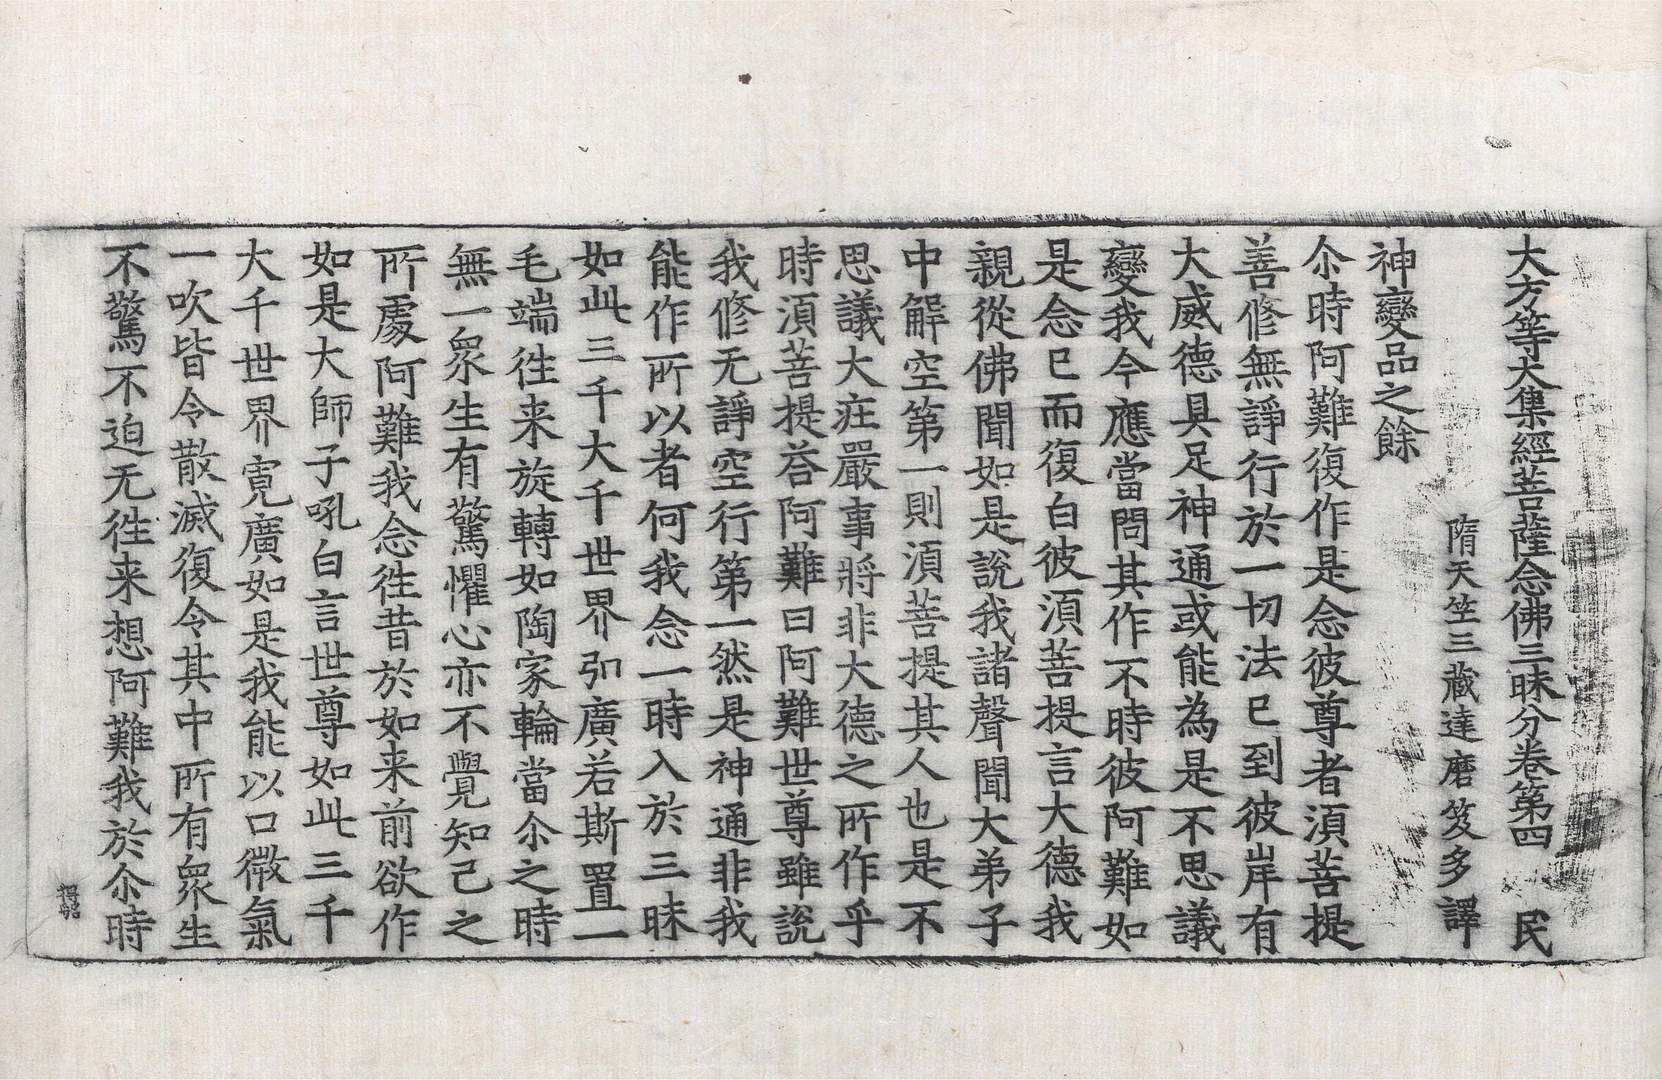 大方等大集經菩薩念佛三昧分卷第四　民
隋天竺三藏達磨笈多譯
神變品之餘
尒時阿難復作是念彼尊者湏菩提
善修無諍行於一切法已到彼岸有
大威德具足神通或能為是不思議
變我今應當問其作不時彼阿難如
是念已而復白彼湏菩提言大德我
親從佛聞如是說我諸聲聞大弟子
中解空第一則湏菩提其人也是不
思議大庄嚴事將非大德之所作乎
時湏菩提荅阿難曰阿難世尊雖說
我修无諍空行第一然是神通非我
能作所以者何我念一時入於三昧
如此三千大千世界弘廣若斯置一
毛端徃来旋轉如陶家輪當尒之時
無一衆生有驚懼心亦不覺知己之
所處阿難我念徃昔於如来前欲作
如是大師子吼白言世尊如此三千
大千世界寬廣如是我能以口微氣
一吹皆令散滅復令其中所有衆生
不驚不迫无徃来想阿難我於尒時